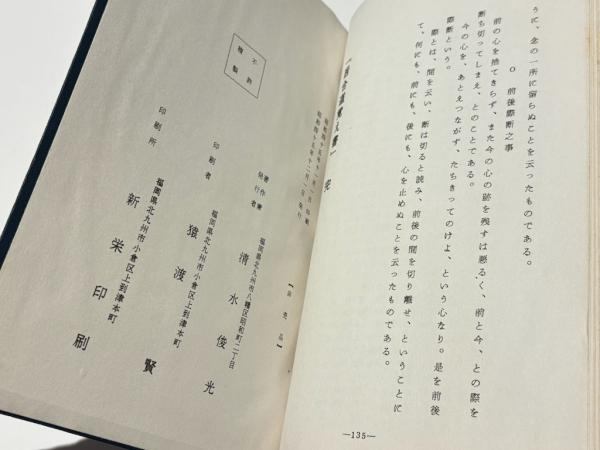 うに、念の一所に留らぬことを云ったものである。
〇 前後際断之事
前の心を捨てきらず、また今の心の跡を残すは悪るく、前と今、との際を
断ち切ってしまえ、とのことである。
今の心を、あとえつながず、たちきってのけよ、という心なり。是を前後
際断という。
際とは、間を云い、断は切ると読み、前後の間を切り離せ、ということに
て、何にも、前にも、後にも、心を止めぬことを云ったものである。
完
―135―
【非売品】
著作兼
発行者
福岡県北九州市八幡区昭和町二丁目
清水俊光
福岡県北九州市小倉区上到津本町
印刷者
猿渡賢
福岡県北九州市小倉区上到津本町
印刷所
新栄印刷
不許
複製